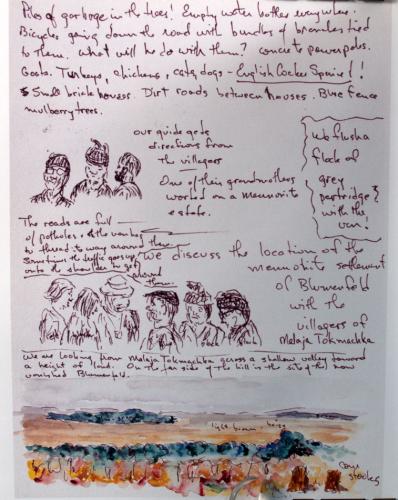 Piles of garbage in the trees! Empty water bottles everywhere.
Bicycles going down the road with bundles of branches tied
to them. What will he do with them? concrete power poles.
Goats. Turkeys, chickens, cats, dogs - English Cocker Spaniel!
Small brick houses. Dirt roads between houses. Blue fence
mulberry trees.
our guide gets
directions from
the villagers
One of their grandmothers
worked on a mennonite
estate.
We flush a
flock of
grey
partridge?
with the
van!
The roads are full
of potholes & the van has
to thread its way around them
Sometimes the traffic goes up
onto the shoulder to get
around
them
We discuss the location of the
mennonite settlement
of Blumenfeld
with the
villagers of
Malaja Tokmachka
We are looking from Malaja Tokmachka across a shallow valley toward
a height of land. On the far side of the hill is the site of the now
vanished Blumenfeld.
light brown beige
corn
stooks